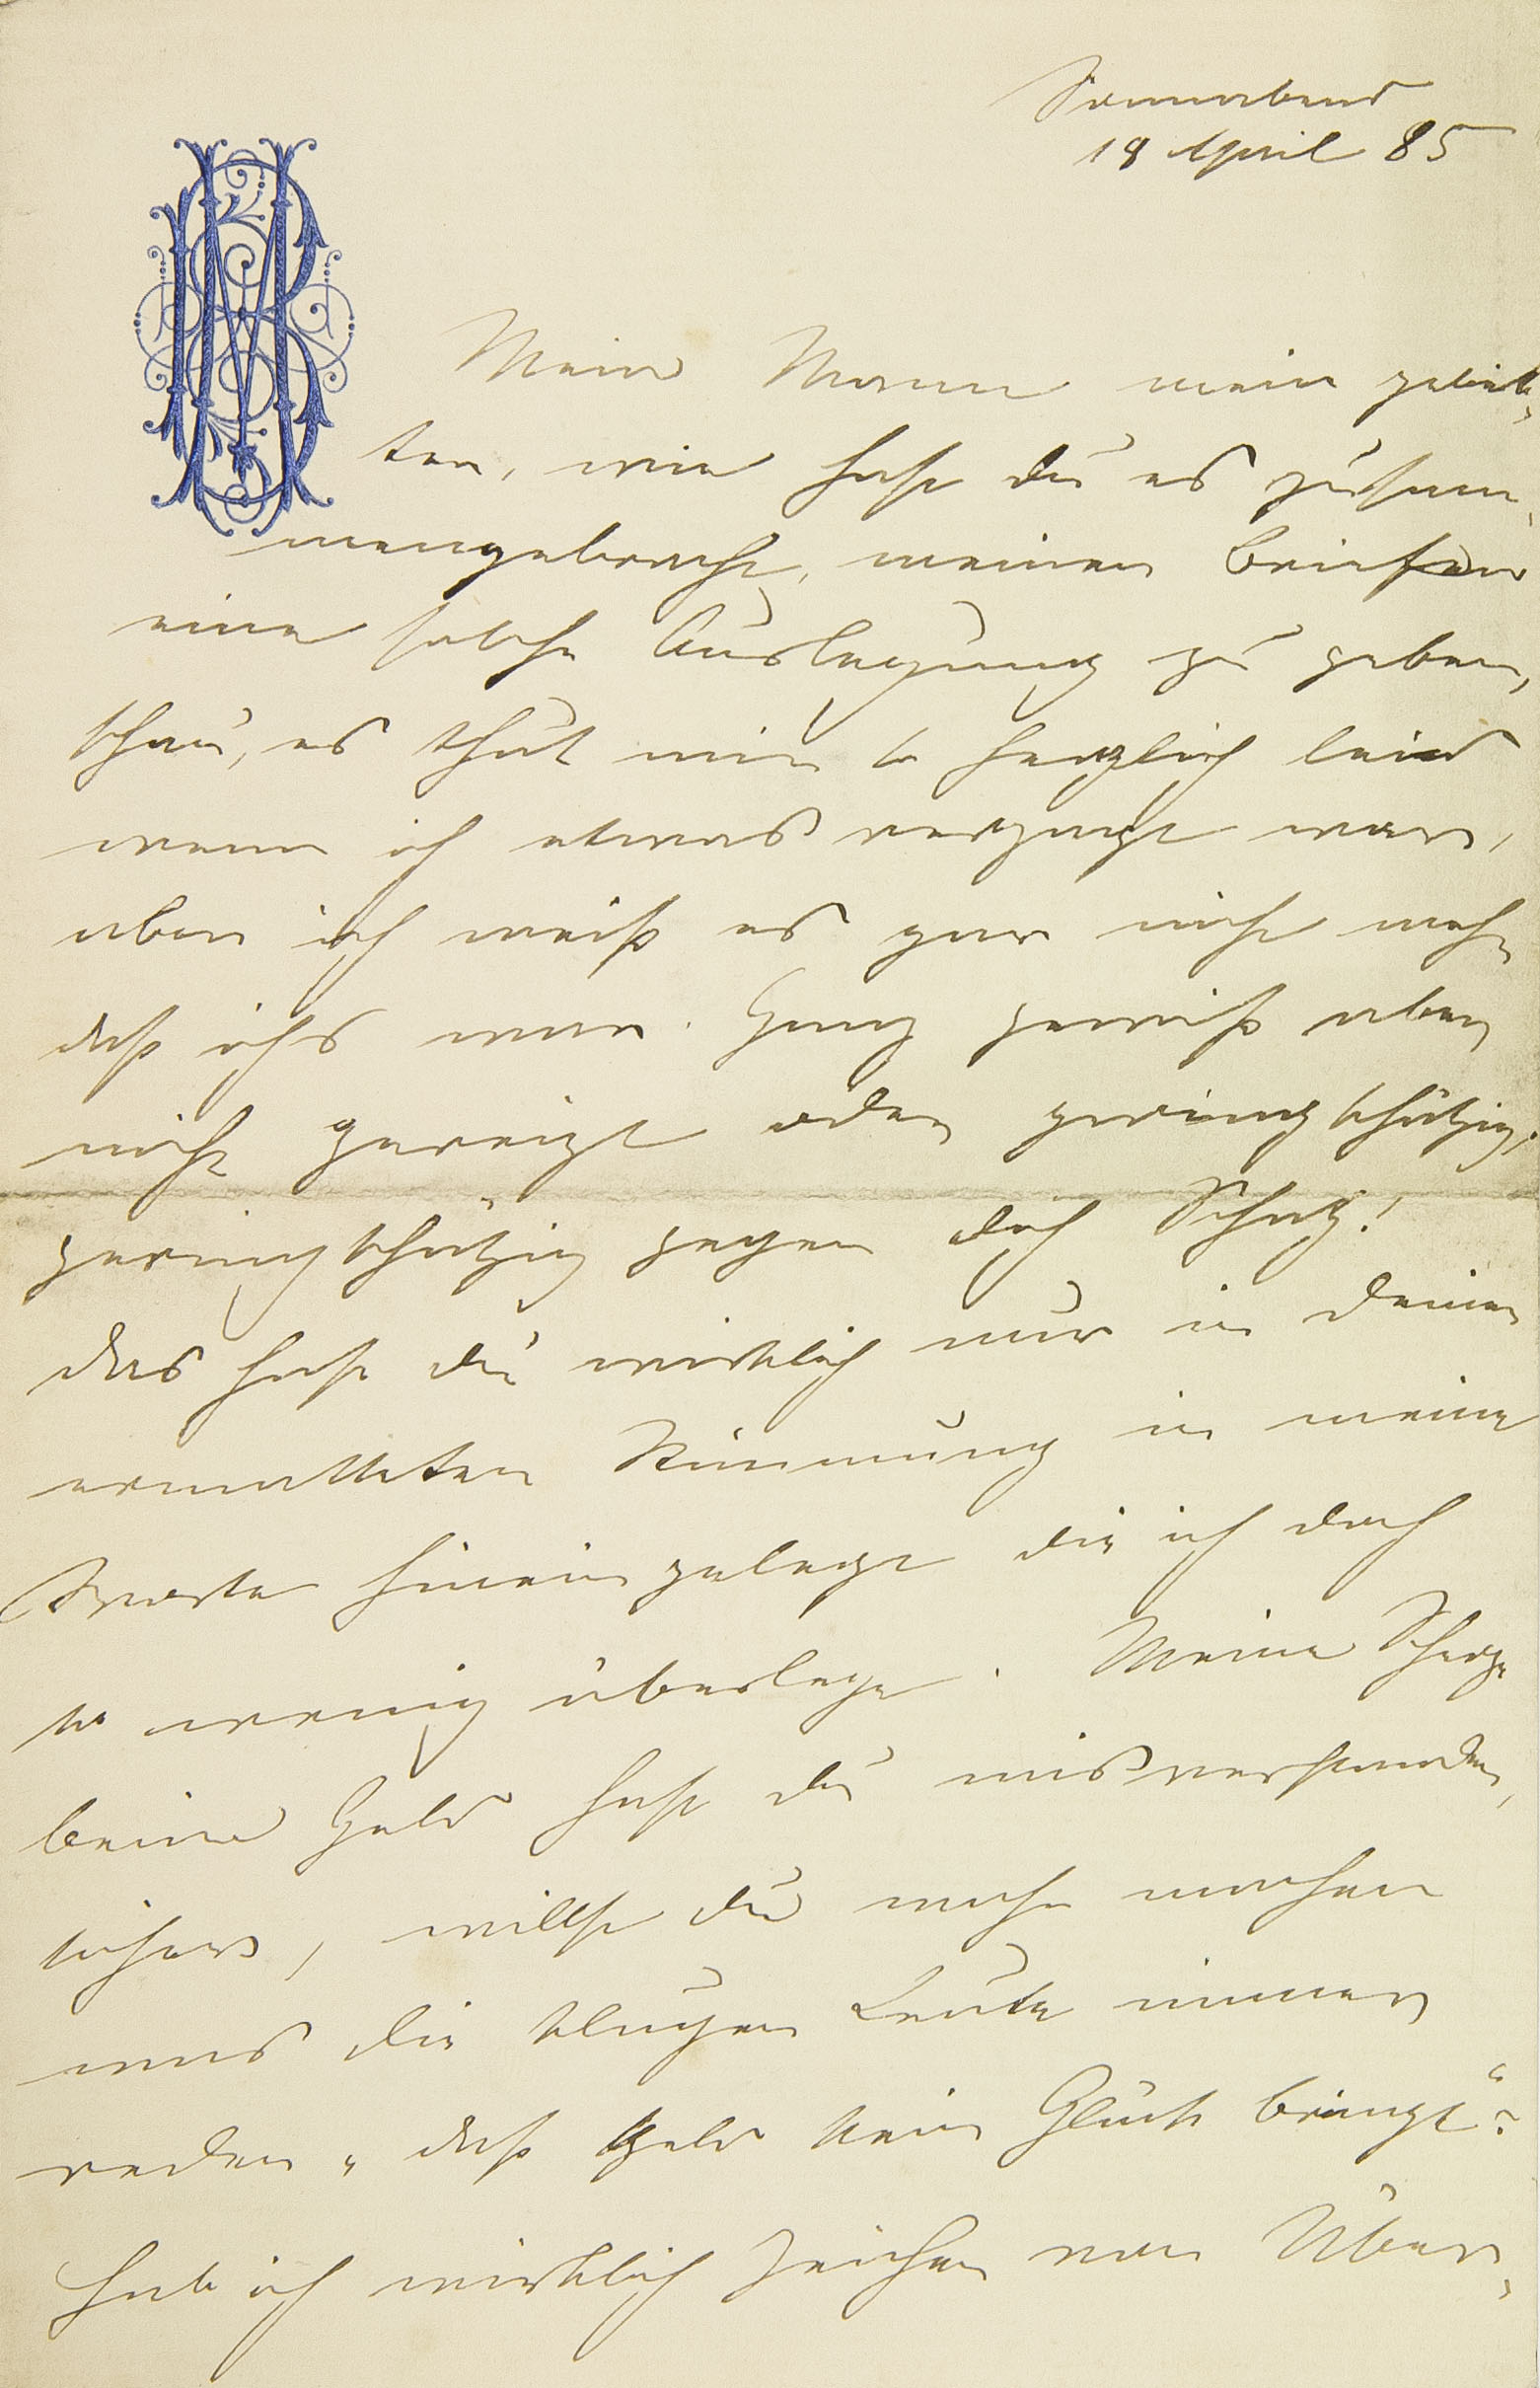 Sonnabend
18 April 85
Mein Mann mein gelieb-
ter, wie hast du es zusam-
mengebracht, meinen Briefen
eine solche Auslegung zu geben,
schau, es thut mir so herzlich leid
wenn ich etwas verzagt war,
aber ich weiß es gar nicht mehr
daß ichs war. Ganz gewiß aber
nicht gereizt oder geringschätzig,
geringschätzig gegen dich Schatz!
das hast du wirklich nur in deiner
ermatteten Stimmung in meine
Worte hineingelegt die ich doch
so wenig überlege. Meine Scherze
beim Geld hast du misverstanden,
sicher, willst du wahr machen
was die klugen Leute immer
reden „daß Geld kein Glück bringt“?
Hab ich wirklich Zeichen von Über-